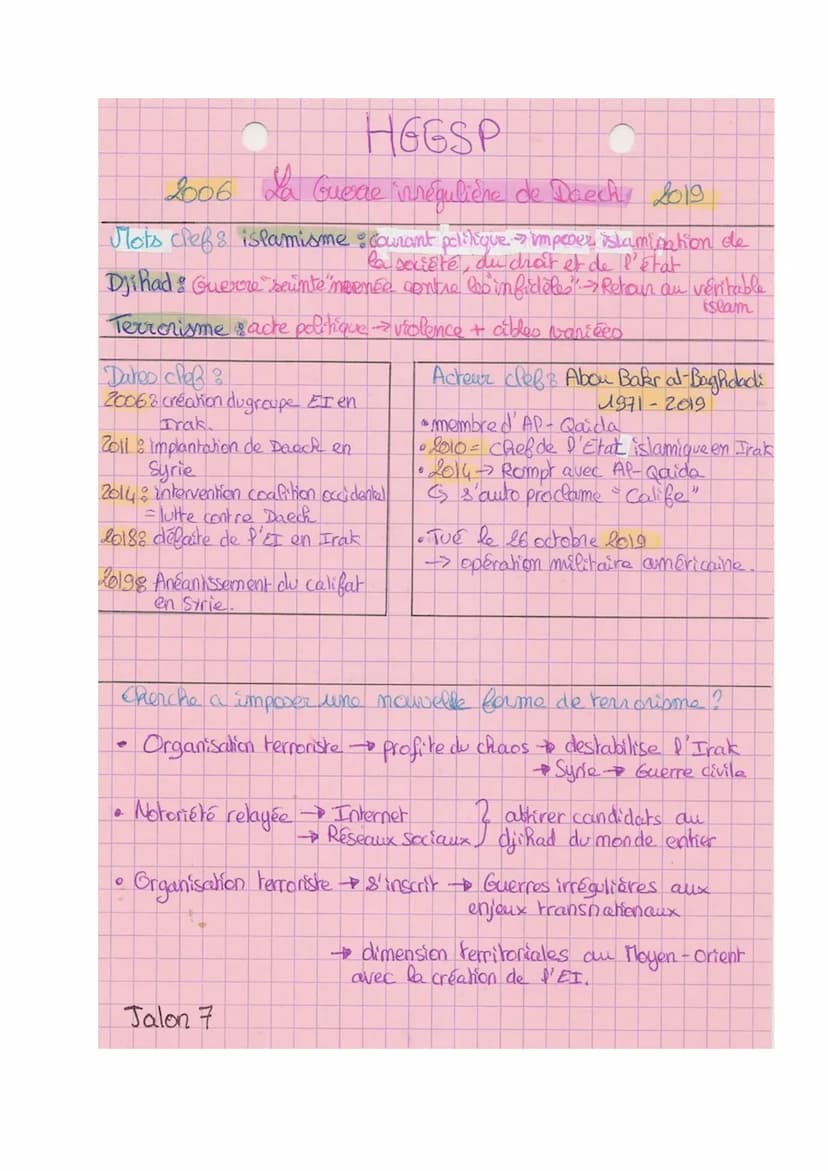 HGGSP
2006 La Guerre irrégulière de Daech 2019
Mots clefs islamisme : Courant politique → imposer islamisation de
la société, du droit et de l'état
Djihad : Guerre "sainte" meenée contre les "infidèles" → Retour au véritable
islam
Terrorisme : acte politique → violence + cibles variées
Dates clef :
2006 : création du groupe EI en
Irak.
2011 : Implantation de Daech en
Syrie
2014 : intervention coalition occidental
= lutte contre Daech
2018 : défaite de l'EI en Irak
2019 : Anéantissement du califat
en Syrie.
Acteur clef : Abou Bakr al-Baghdadi
1971 - 2019
• membre d'Al-Qaida
• 2010 = Chef de l'Etat islamique en Irak
• 2014 → Rompt avec Al-Qaida
↳ s'auto proclame "Calife"
• Tué le 26 octobre 2019
→ opération militaire américaine.
Cherche a imposer une nouvelle forme de terrorisme ?
• Organisation terroriste → profite du chaos → destabilise l'Irak
→ Syrie → Guerre civile
• Notoriété relayée → Internet } attirer candidats au
→ Réseaux sociaux } djihad du monde entier
• Organisation terroriste → s'inscrit → Guerres irrégulières aux
enjeux transnationaux
→ dimension territoriales au Moyen-Orient
avec la création de l'EI.
Jalon 7